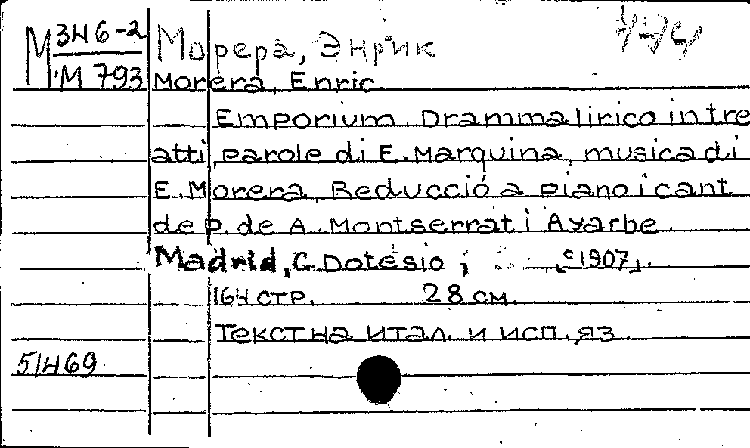 М 346-2 Морера, Энрик
M 793 Morera, Enric
Emporium. Dramma lirico in tre
atti, parole di E. Marquina, musica di
E. Morera, Reducció a piano i cant
de P. de A. Montserrat i Ayarbe
Madrid, C. Dotésio ; c1907.
164 стр. 28 см.
Текст на итал. и исп. яз
51469